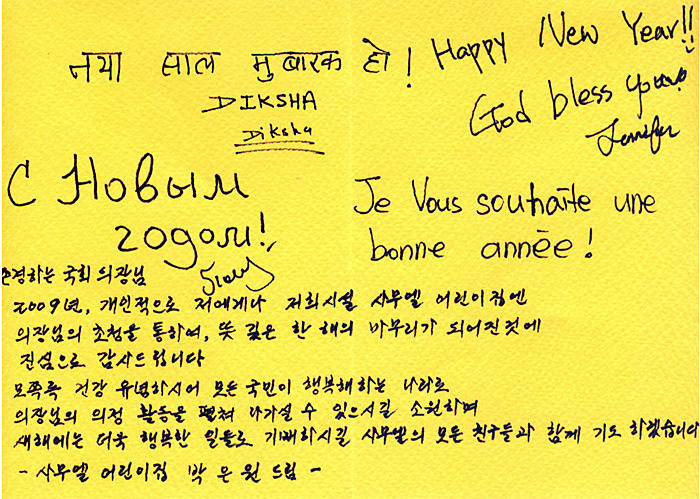 नया साल मुबारक हो!
DIKSHA
Diksha
Happy New Year!!
God bless you!
Jennifer
С Новым
годом!
Je Vous souhaite une
bonne année!
존경하는 국회의장님
2009년, 개인적으로 저에게나 저희시설 사무엘 어린이집엔
의장님의 초청을 통하여, 뜻 깊은 한 해의 마무리가 되어진것에
진심으로 감사드립니다
모쪼록 건강 유념하시어 모든 국민이 행복해하는 나라로
의장님의 의정 활동을 펼쳐 나가실 수 있으시길 소원하며
새해에는 더욱 행복한 일들로 기뻐하시길 사무엘의 모든 친구들과 함께 기도 하겠습니다
- 사무엘 어린이집 박은원 드림 -